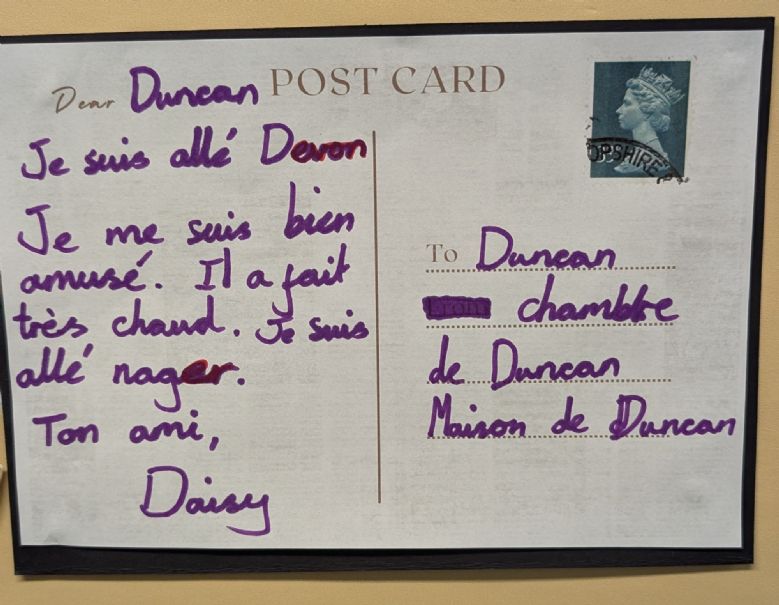 POST CARD
Dear Duncan
Je suis allé Devon
Je me suis bien
amusé. Il a fait
très chaud. Je suis
allé nager.
Ton ami,
Daisy
OPSHIRE
To Duncan
chambre
de Duncan
Maison de Duncan